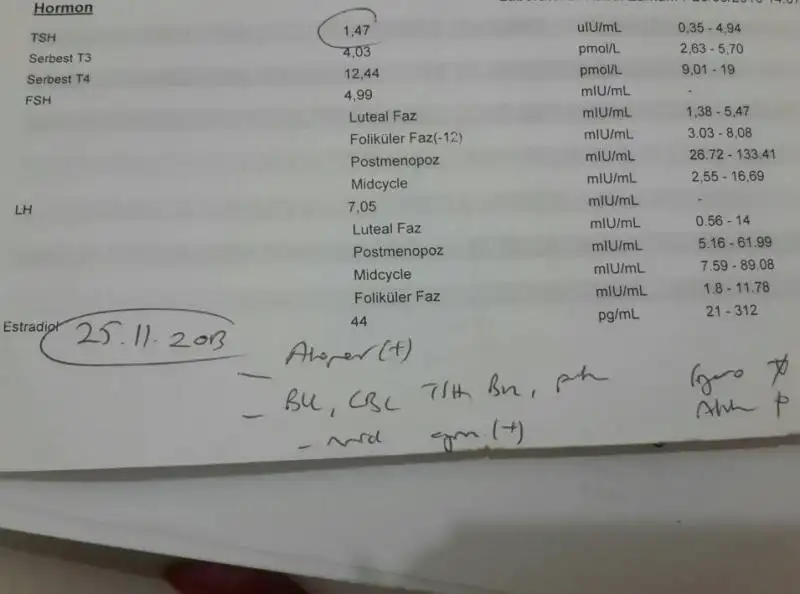 Hormon
TSH 1,47 uIU/mL 0,35 - 4,94
Serbest T3 4,03 pmol/L 2,63 - 5,70
Serbest T4 12,44 pmol/L 9,01 - 19
FSH 4,99 mIU/mL -
Luteal Faz mIU/mL 1,38 - 5,47
Foliküler Faz(-12) mIU/mL 3.03 - 8,08
Postmenopoz mIU/mL 26.72 - 133.41
Midcycle mIU/mL 2,55 - 16,69
LH 7,05 mIU/mL -
Luteal Faz mIU/mL 0.56 - 14
Postmenopoz mIU/mL 5.16 - 61.99
Midcycle mIU/mL 7.59 - 89.08
Foliküler Faz mIU/mL 1.8 - 11.78
Estradiol 44 pg/mL 21 - 312
25.11.2013
(+)
- CBC TSH
- (+)